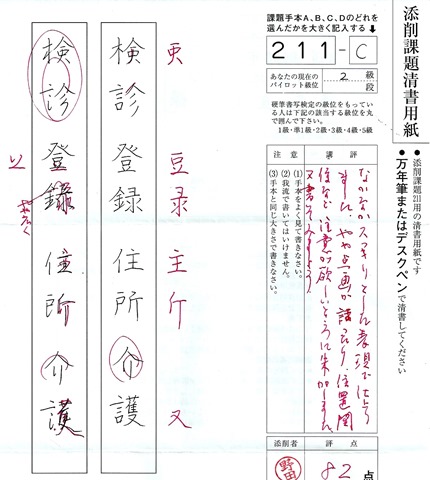 添削課題清書用紙
●添削課題211用の清書用紙です
●万年筆またはデスクペンで清書してください
課題手本A、B、C、Dのどれを
選んだかを大きく記入する↓
211-C
あなたの現在の
パイロット級位
2 級
段
硬筆書写検定の級位をもってい
る人は下記の該当する級位を丸
で囲んで下さい。
1級・準1級・2級・3級・4級・5級
講評
なかなかスッキリとした表現で仕上
やや点画が
位置関
係など注意が欲しいところに朱
又書いてみましょう
注意
(1)手本をよく見て書きなさい。
(2)我流で書いてはいけません。
(3)手本と同じ大きさで書きなさい。
評点
82点
添削者
野田
豆 录 主 斤 又
検診 登録 住所 介護
検診 登録 住所 介護